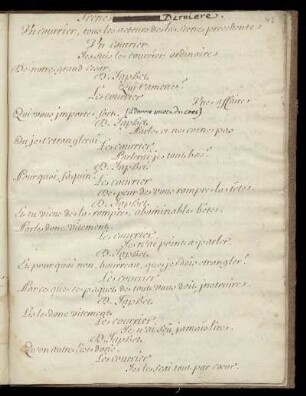 Scene Derniere.
Un courier, tous les acteurs de la scene precedente
Un Courier
Je suis le courier ordinaire
De notre grand Cesar.
D. Japhet.
Qui t'amene?
Le Courier.
Une affaire
Qui vous importe fort.
D. Japhet.
Parle et ne crie pas
Ou je t'etranglerai.
Le Courier.
Parlerai je tout bas?
D. Japhet.
Pourquoi, faquin?
Le Courier
De peur de vous rompre la tête.
D. Japhet
Et tu viens de la rompre, abominable bete.
Parle donc vitement.
Le Courier.
Je n'ai point a parler.
D. Japhet.
Et pourquoi non, bourreau, que je dois etrangler?
Le Courier
Parce que ce paquet de tout vous doit instruire.
D. Japhet
Lis le donc vitement.
Le Courier.
Je n'ai sçû jamais lire.
D. Japhet.
Qu'un autre lise donc.
Le Courier
Je le sçai tout par cœur.